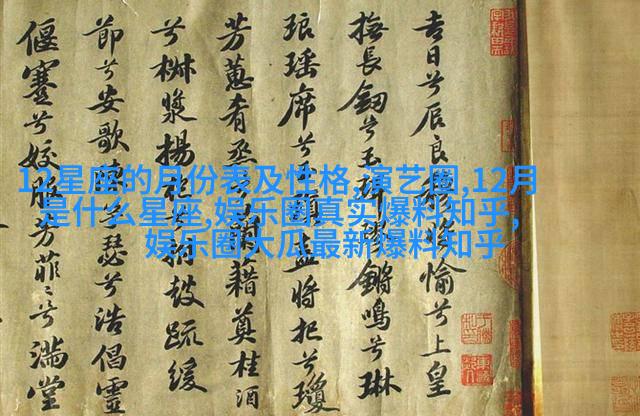 吉日兮辰良穆將愉兮上皇
撫長劒兮玉珥璆鏘鳴兮琳
琅瑤席兮玉瑱盍將把兮瓊
芳蕙肴烝兮蘭藉奠桂酒
兮椒漿揚枹兮拊鼓疏緩
節兮安歌陳竽瑟兮浩倡靈
偃蹇兮姣服芳菲〻兮滿堂
12星座的月份表及性格,演艺圈,12月
是什么星座,娱乐圈真实爆料知乎,
娱乐圈大瓜最新爆料知乎